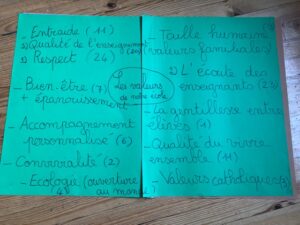 - Entraide (11)
2) Qualité de l'enseignement (20)
3) Respect (24)
- Bien-être (7)
+ épanouissement
- Accompagnement
personnalisé (6)
- Convivialité (2)
- Ecologie (ouverture
au monde)
4
Les valeurs
de notre école
- Taille humaine
(valeurs familiales)
1) L'écoute des
enseignants
- La gentillesse entre
élèves (1)
- Qualité du vivre
ensemble (11)
- Valeurs catholiques (3)